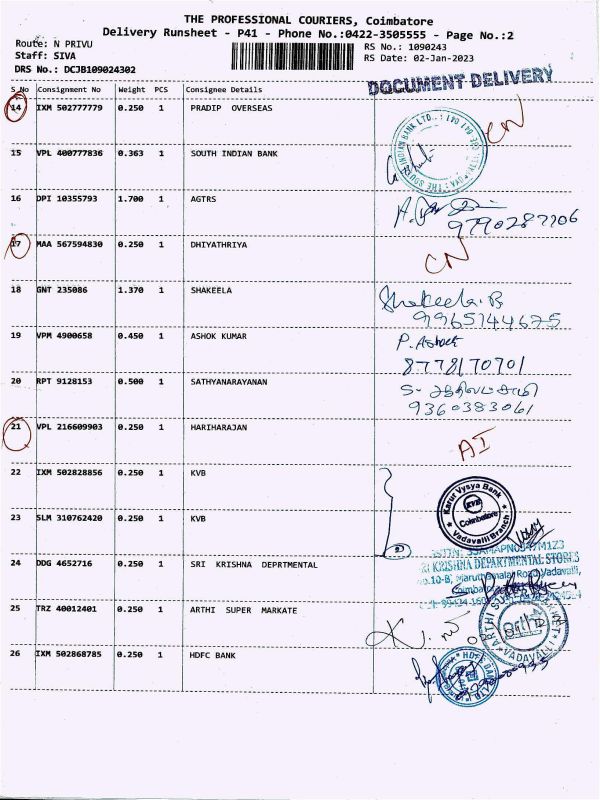 THE PROFESSIONAL COURIERS, Coimbatore
Delivery Runsheet - P41 - Phone No.:0422-3505555 - Page No.:2
Route: N PRIVU RS No.: 1090243
Staff: SIVA RS Date: 02-Jan-2023
DRS No.: DCJB109024302
DOCUMENT DELIVERY
S No Consignment No Weight PCS Consignee Details
14 IXM 502777779 0.250 1 PRADIP OVERSEAS CN
15 VPL 400777836 0.363 1 SOUTH INDIAN BANK
16 DPI 10355793 1.700 1 AGTRS
17 MAA 567594830 0.250 1 DHIYATHRIYA CN
18 GNT 235086 1.370 1 SHAKEELA Shakeela. B
9965144675
19 VPM 4900658 0.450 1 ASHOK KUMAR P. Ashok
8778170701
20 RPT 9128153 0.500 1 SATHYANARAYANAN
9360383061
21 VPL 216609903 0.250 1 HARIHARAJAN AI
22 IXM 502828856 0.250 1 KVB
Karur Vysya Bank
KVB
Coimbatore
Vadavalli Branch
23 SLM 310762420 0.250 1 KVB
2
24 DDG 4652716 0.250 1 SRI KRISHNA DEPRTMENTAL
KRISHNA DEPARTMENTAL STORES
10-B, Maruthamalai Road, Vadavalli,
25 TRZ 40012401 0.250 1 ARTHI SUPER MARKATE
VADAVALLI
26 IXM 502868785 0.250 1 HDFC BANK
HDFC